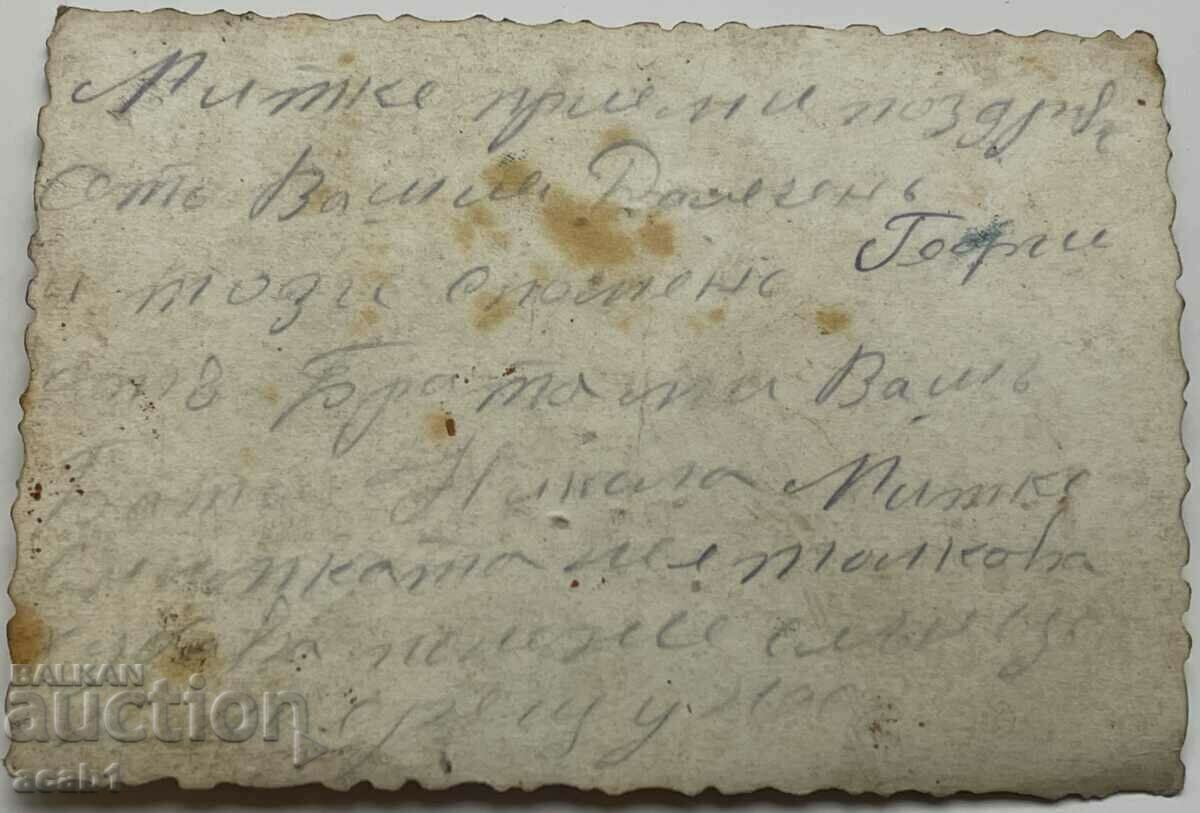 Митке приеми поздрав
отъ Вашия
Георги
и този споменъ
отъ Брата ми Вашъ
Никола Митке
снимката не е толкова
слънце
срещу нас
BALKAN
auction
acab1